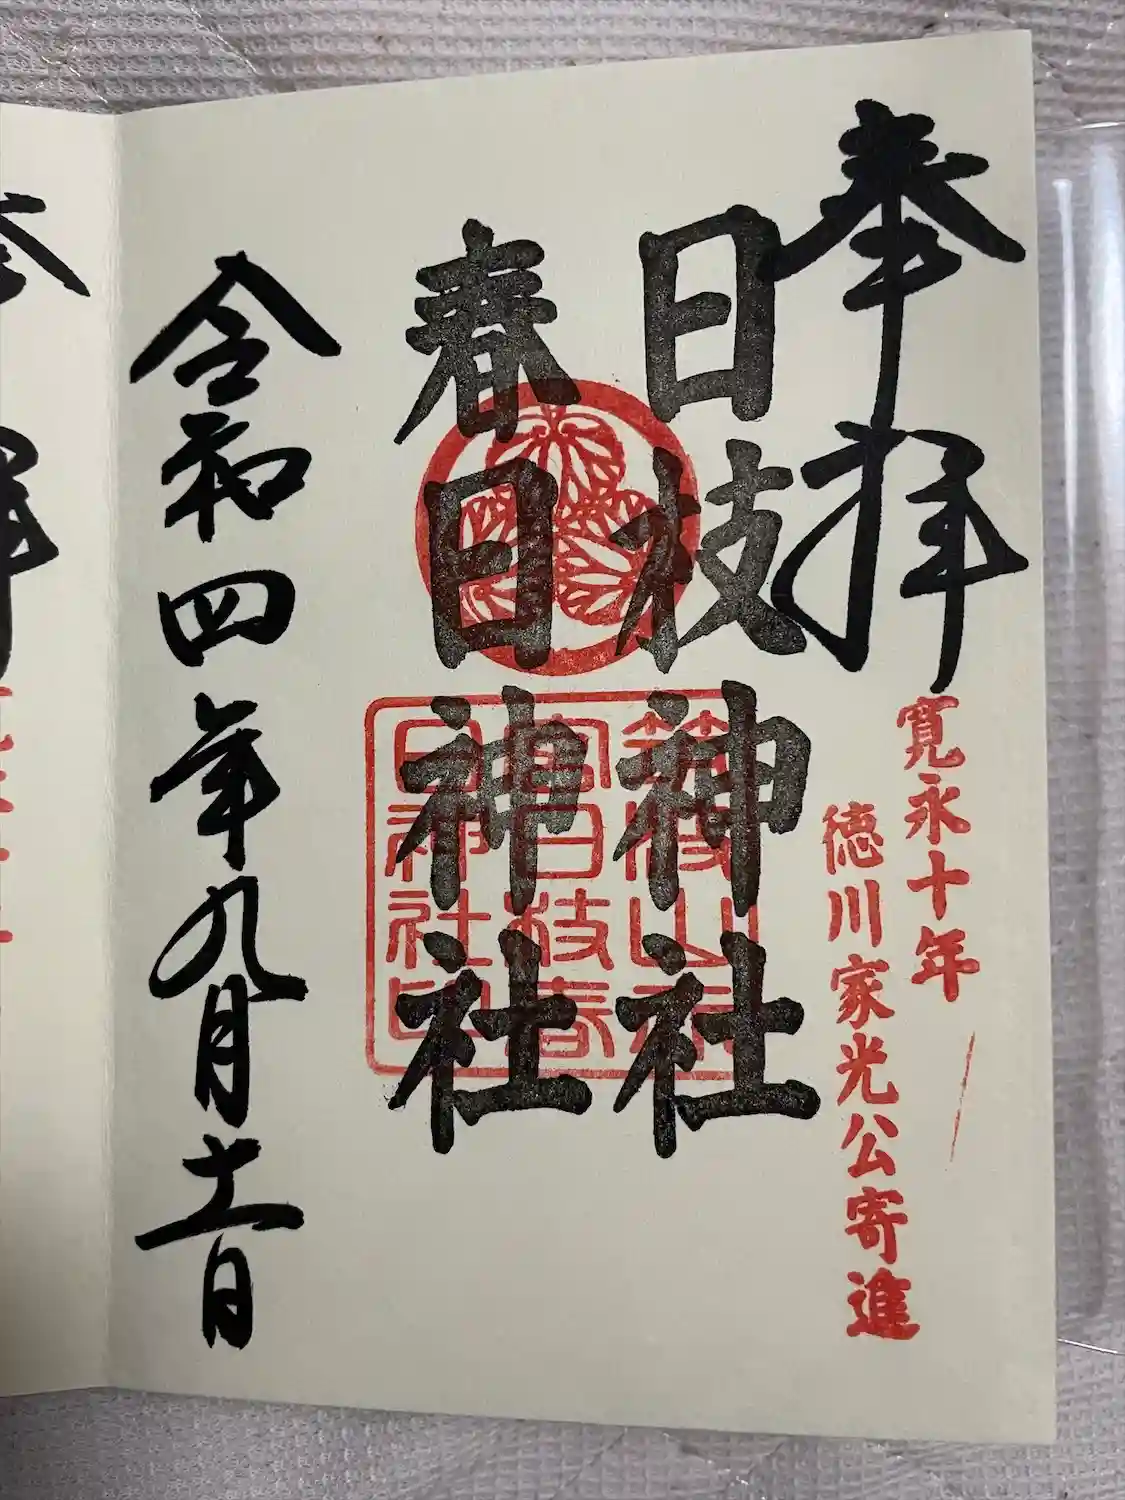 奉拝
寛永十年
徳川家光公寄進
日枝神社
春日神社
令和四年九月十一日
奉拝